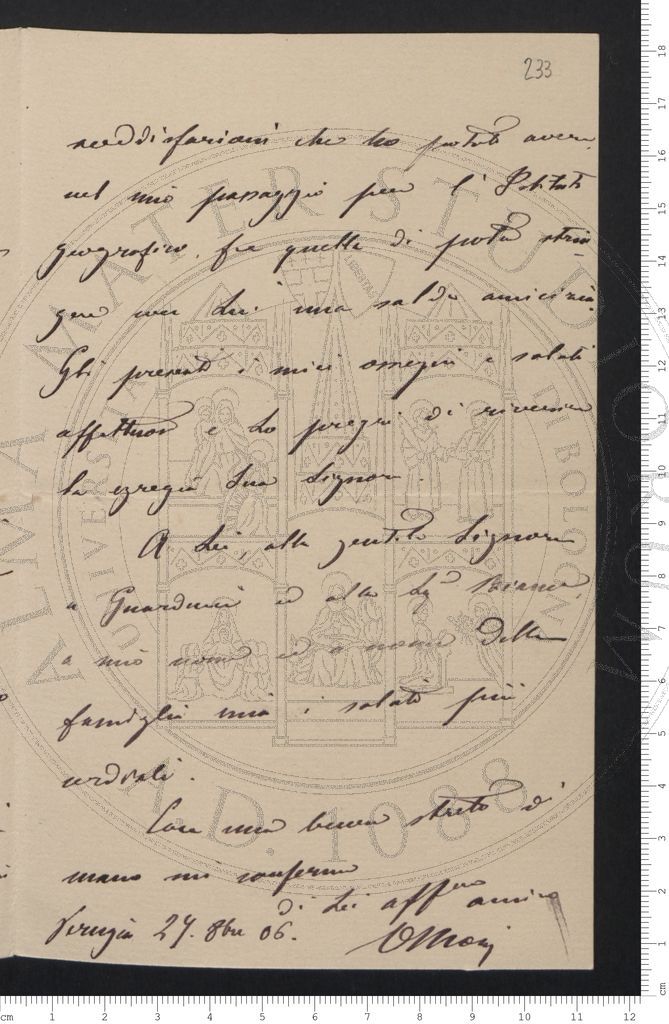 233
soddisfazioni che ho potuto avere
nel mio passaggio per l'Istituto
geografico, fu quella di poter strin-
gere con Lei una salda amicizia.
Gli presenti i miei omaggi e saluti
affettuosi e La prego di riverire
la egregia Sua Signora.
A Lei, alla gentile Signora
a Guarducci ed alla Sig.ra Bianca,
a mio nome ed a nome della
famiglia mia i saluti più
cordiali.
Con una buona stretta di
mano mi confermo
di Lei aff.mo amico
Perugia 27. 8bre 06.
ALMA MATER STUDIORUM
UNIVERSITÀ DI BOLOGNA
A.D. 1088
LIBERTAS
cm 1 2 3 4 5 6 7 8 9 10 11 12
cm 1 2 3 4 5 6 7 8 9 10 11 12 13 14 15 16 17 18